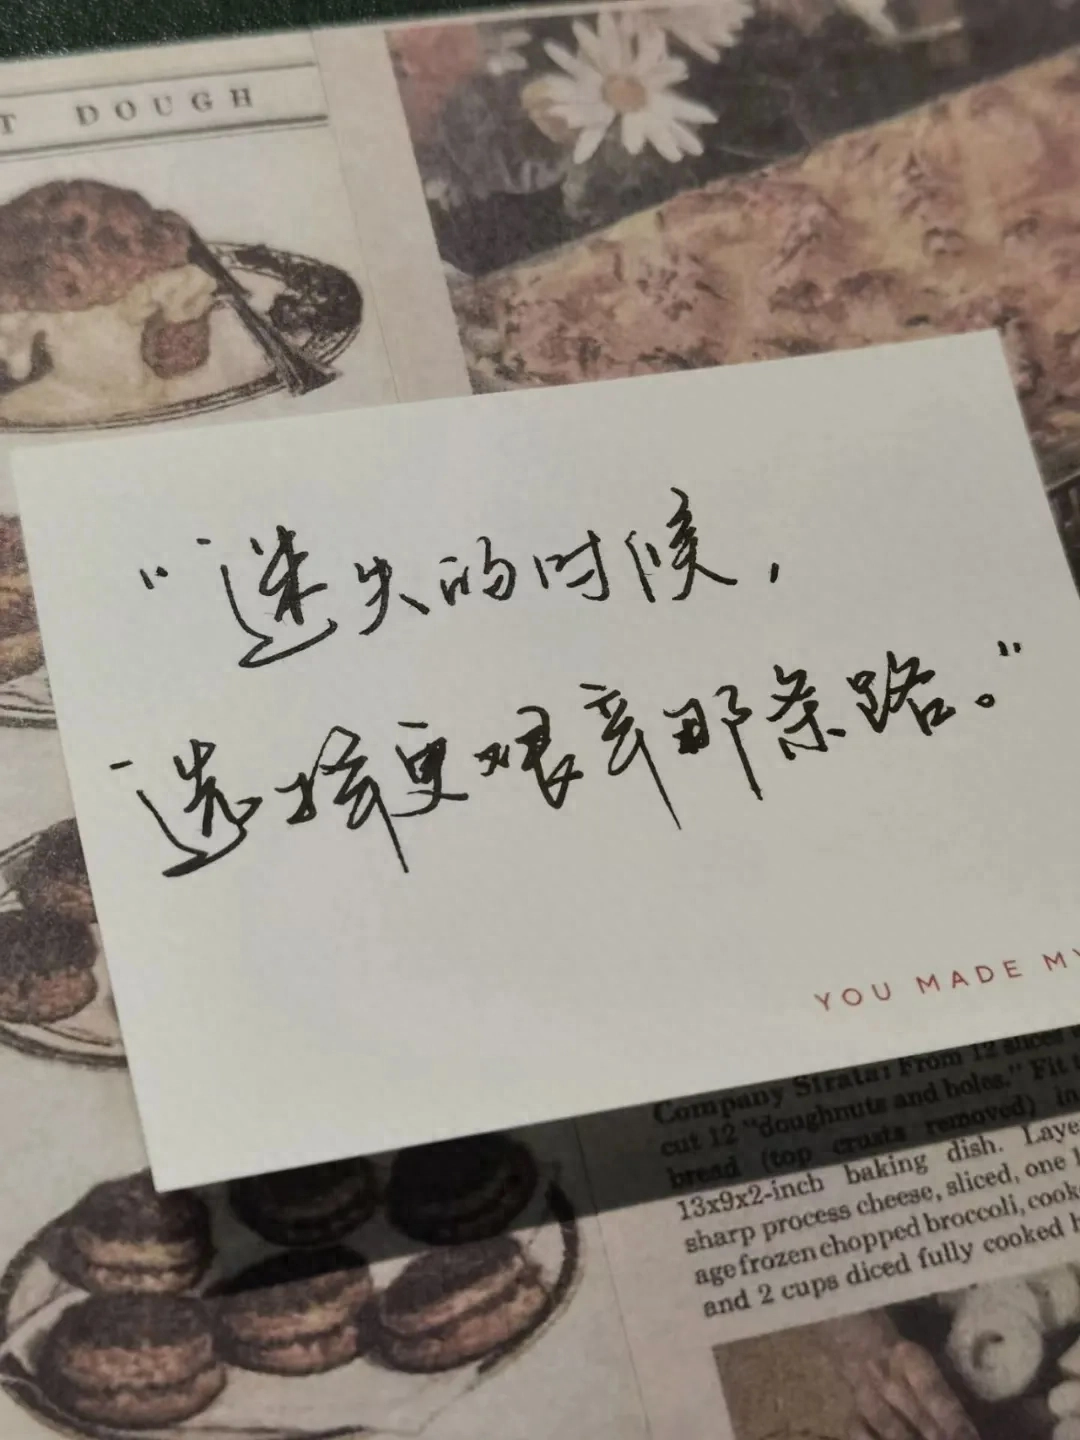 T DOUGH
“迷失的时候，
选择更艰辛那条路。”
YOU MADE MY
Company Strata: From 12 slices
cut 12 "doughnuts and holes." Fit
bread (top crusts removed) in
13x9x2-inch baking dish. Laye
sharp process cheese, sliced, one
age frozen chopped broccoli, cook
and 2 cups diced fully cooked h